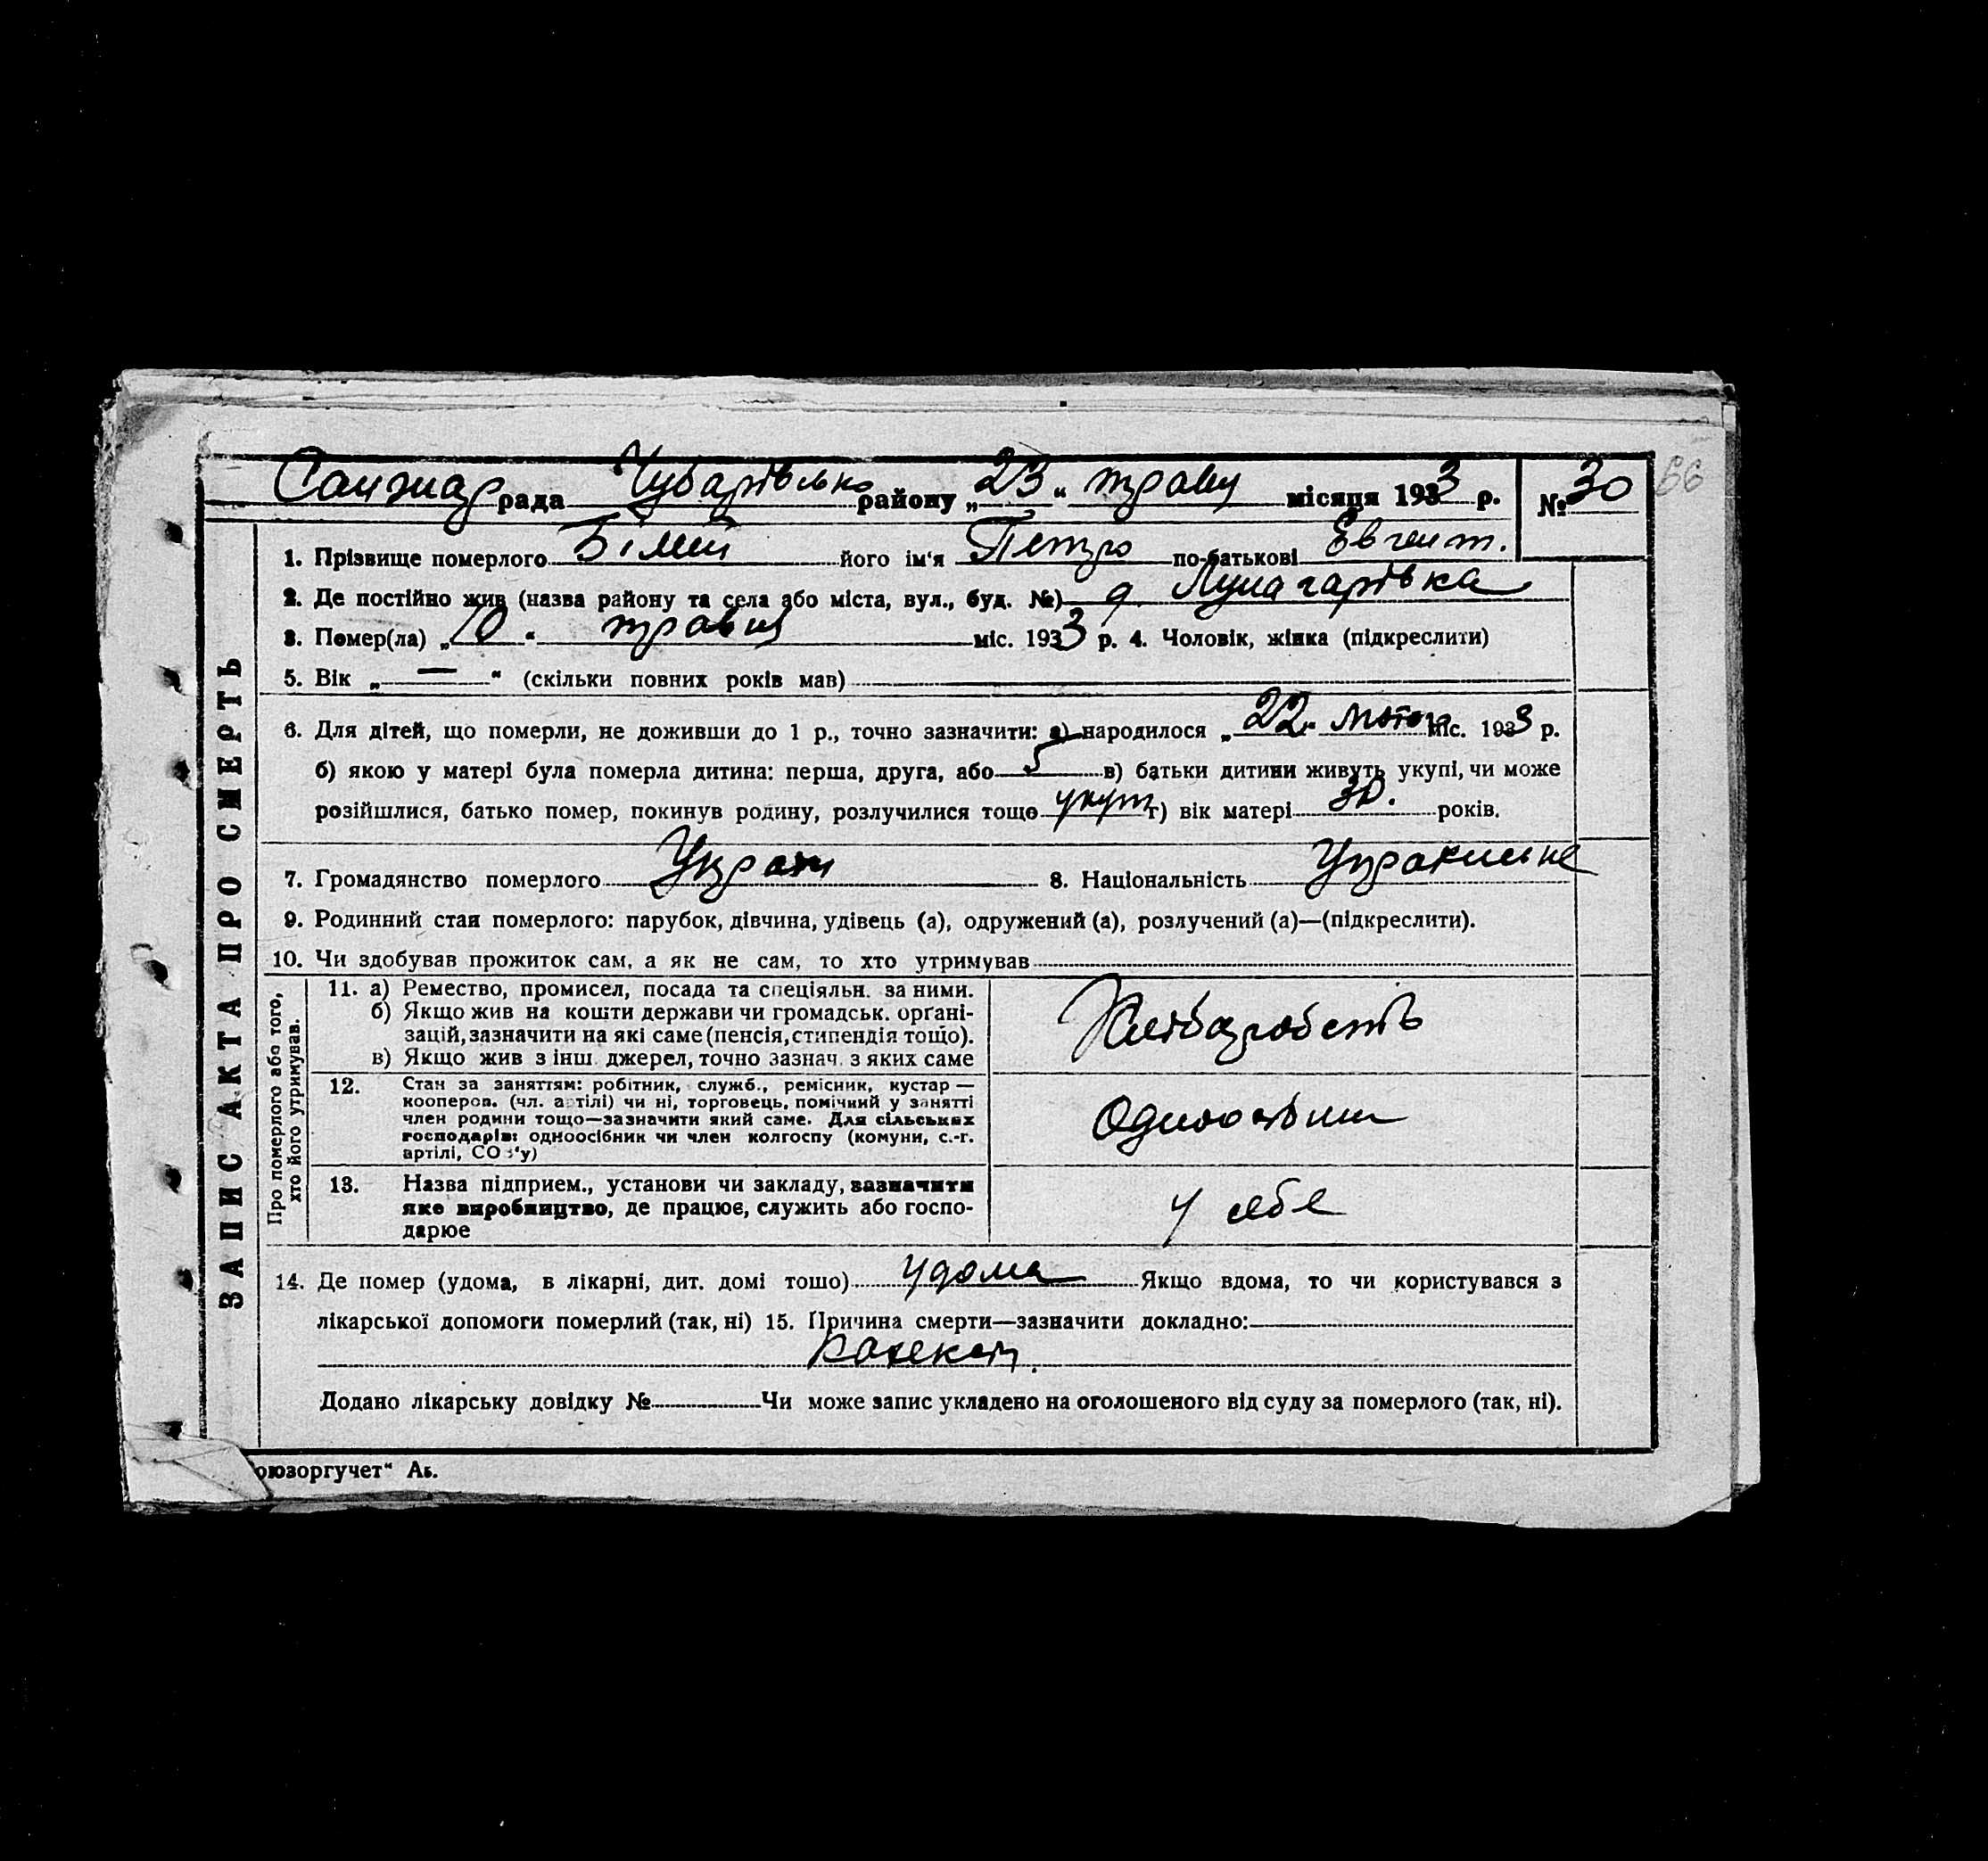 Санжар рада Чубарівсько району „23“ травн місяця 1933 р. № 30
66
1. Прізвище померлого Білий його ім'я Петро по-батькові
2. Де постійно жив (назва району та села або міста, вул., буд. №) Луначарівка
3. Помер(ла) „10“ травня міс. 1933 р. 4. Чоловік, жінка (підкреслити)
5. Вік „—“ (скільки повних років мав)
6. Для дітей, що померли, не доживши до 1 р., точно зазначити: а) народилося „22“ лютого міс. 1933 р.
б) якою у матері була померла дитина: перша, друга, або 5 в) батьки дитини живуть укупі, чи може
розійшлися, батько помер, покинув родину, розлучилися тощо укуп г) вік матері 30. років.
7. Громадянство померлого Укран 8. Національність
9. Родинний стан померлого: парубок, дівчина, удівець (а), одружений (а), розлучений (а)—(підкреслити).
10. Чи здобував прожиток сам, а як не сам, то хто утримував
ЗАПИС АКТА ПРО СМЕРТЬ
Про померлого або того,
хто його утримував.
11. а) Ремество, промисел, посада та спеціяльн. за ними.
б) Якщо жив на кошти держави чи громадськ. орґані-
зацій, зазначити на які саме (пенсія, стипендія тощо).
в) Якщо жив з інш. джерел, точно зазнач. з яких саме
Хлібороб
12. Стан за заняттям: робітник, служб., ремісник, кустар —
кооперов. (чл. артілі) чи ні, торговець, помічний у занятті
член родини тощо—зазначити який саме. Для сільських
господарів: одноосібник чи член колгоспу (комуни, с.-г.
артілі, СОЗ'у)
13. Назва підприєм., установи чи закладу, зазначити
яке виробництво, де працює, служить або госпо-
дарює
у себе
14. Де помер (удома, в лікарні, дит. домі тошо) удома Якщо вдома, то чи користувався з
лікарської допомоги померлий (так, ні) 15. Причина смерти—зазначити докладно:
Додано лікарську довідку № Чи може запис укладено на оголошеного від суду за померлого (так, ні).
оюзоргучет“ Аб.